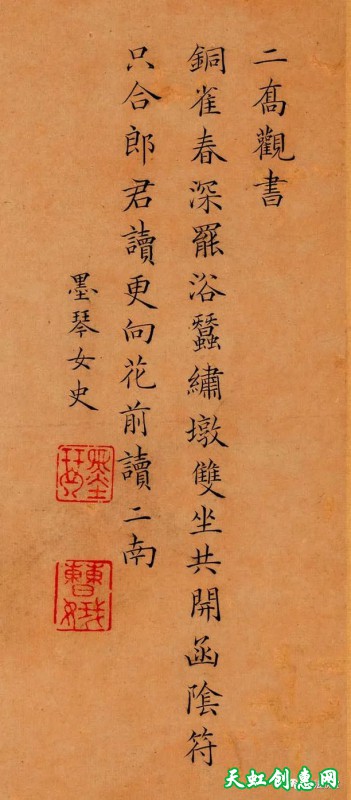 二喬觀書
銅雀春深罷浴蠶繡墩雙坐共開函陰符
只合郎君讀更向花前讀二南
墨琴女史
墨琴
曹娥
天虹创惠网